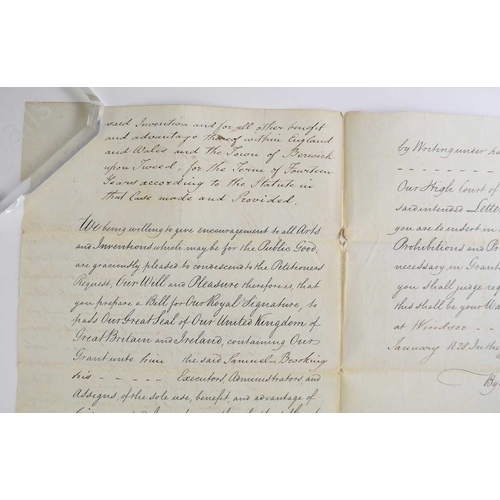 said Invention and for all other benefit
and advantage thereof within England
and Wales and the Town of Berwick
upon Tweed, for the Term of Fourteen
Years according to the Statute in
that Case made and Provided.
We being willing to give encouragement to all Arts
and Inventions which may be for the Public Good,
are graciously pleased to condescend to the Petitioners
Request, Our Will and Pleasure therefore is, that
you prepare a Bill for Our Royal Signature, to
pass Our Great Seal of Our United Kingdom of
Great Britain and Ireland, containing Our
Grant unto him the said Samuel Brooking
his - - - - - Executors, Administrators, and
Assigns, of the sole use, benefit, and advantage of
by Writing under
- - - - - -
Our High Court of
said intended Letter
you are to insert in
Prohibitions and Pr
necessary, in Grant
you shall judge re
this shall be your Wa
at Windsor - -
January 1828. In the
By